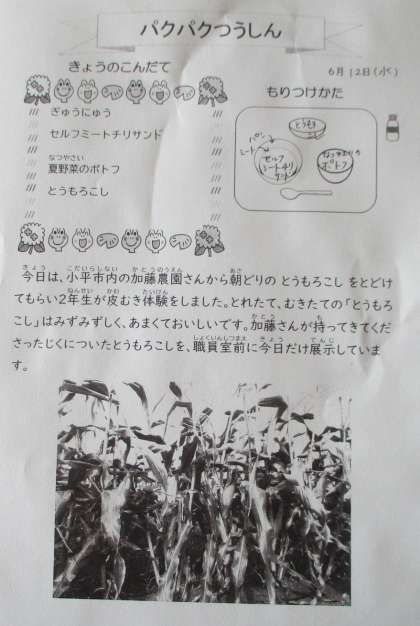 パクパクつうしん
きょうのこんだて
6月12日(水)
もりつけかた
ぎゅうにゅう
セルフミートチリサンド
なつやさい
夏野菜のポトフ
とうもろこし
とうもろ
こし
パン
ミート
セルフ
ミートチリ
サンド
ポトフ
きょう こだいらしない かとうのうえん あさ
今日は、小平市内の加藤農園さんから朝どりの とうもろこし をとどけ
ねんせい かわ たいけん
てもらい2年生が皮むき体験をしました。とれたて、むきたての「とうもろ
かとう も
こし」はみずみずしく、あまくておいしいです。加藤さんが持ってきてくだ
しょくいんしつまえ きょう てんじ
さったじくについたとうもろこしを、職員室前に今日だけ展示していま
す。